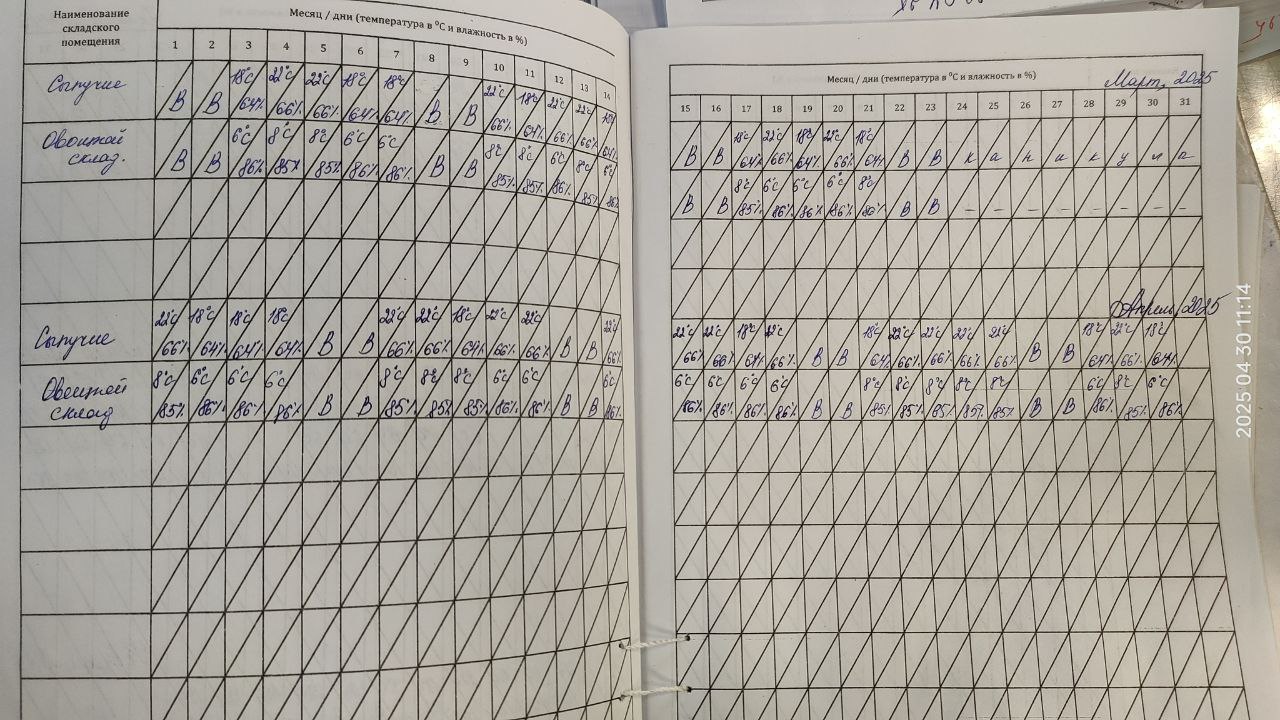 Наименование
складского
помещения
Месяц / дни (температура в ⁰С и влажность в %)
1 2 3 4 5 6 7 8 9 10 11 12 13 14
Сыпучие
В В 18°С 22°С 22°С 18°С 18°С В В 22°С 18°С 22°С 22°С
64% 66% 66% 64% 64% 66% 64% 66% 66% 64%
Овощной
склад.
В В 6°С 8°С 8°С 6°С 6°С В В 8°С 8°С 6°С 8°С 6°С
86% 85% 85% 86% 86% 85% 85% 86% 85% 86%
Сыпучие
22°С 18°С 18°С 18°С В В 22°С 22°С 18°С 22°С 22°С В В 22°С
66% 64% 64% 64% 66% 66% 64% 66% 66% 66%
Овощной
склад
8°С 6°С 6°С 6°С В В 8°С 8°С 8°С 6°С 6°С В В 6°С
85% 86% 86% 86% 85% 85% 85% 86% 86% 86%
Месяц / дни (температура в ⁰С и влажность в %)
Март, 2025
15 16 17 18 19 20 21 22 23 24 25 26 27 28 29 30 31
В В 18°С 22°С 18°С 22°С 18°С В В к а н и к у л а
64% 66% 64% 66% 64%
В В 8°С 6°С 6°С 6°С 8°С В В – – – – – – – –
85% 86% 86% 86% 86%
Апрель, 2025
22°С 22°С 18°С 22°С В В 18°С 22°С 22°С 22°С 22°С В В 18°С 22°С 18°С
66% 66% 64% 66% 64% 66% 66% 66% 66% 64% 66% 64%
6°С 6°С 6°С 6°С В В 8°С 8°С 8°С 8°С 8°С В В 6°С 8°С 6°С
86% 86% 86% 86% 85% 85% 85% 85% 85% 86% 85% 86%
2025 04 30 11:14